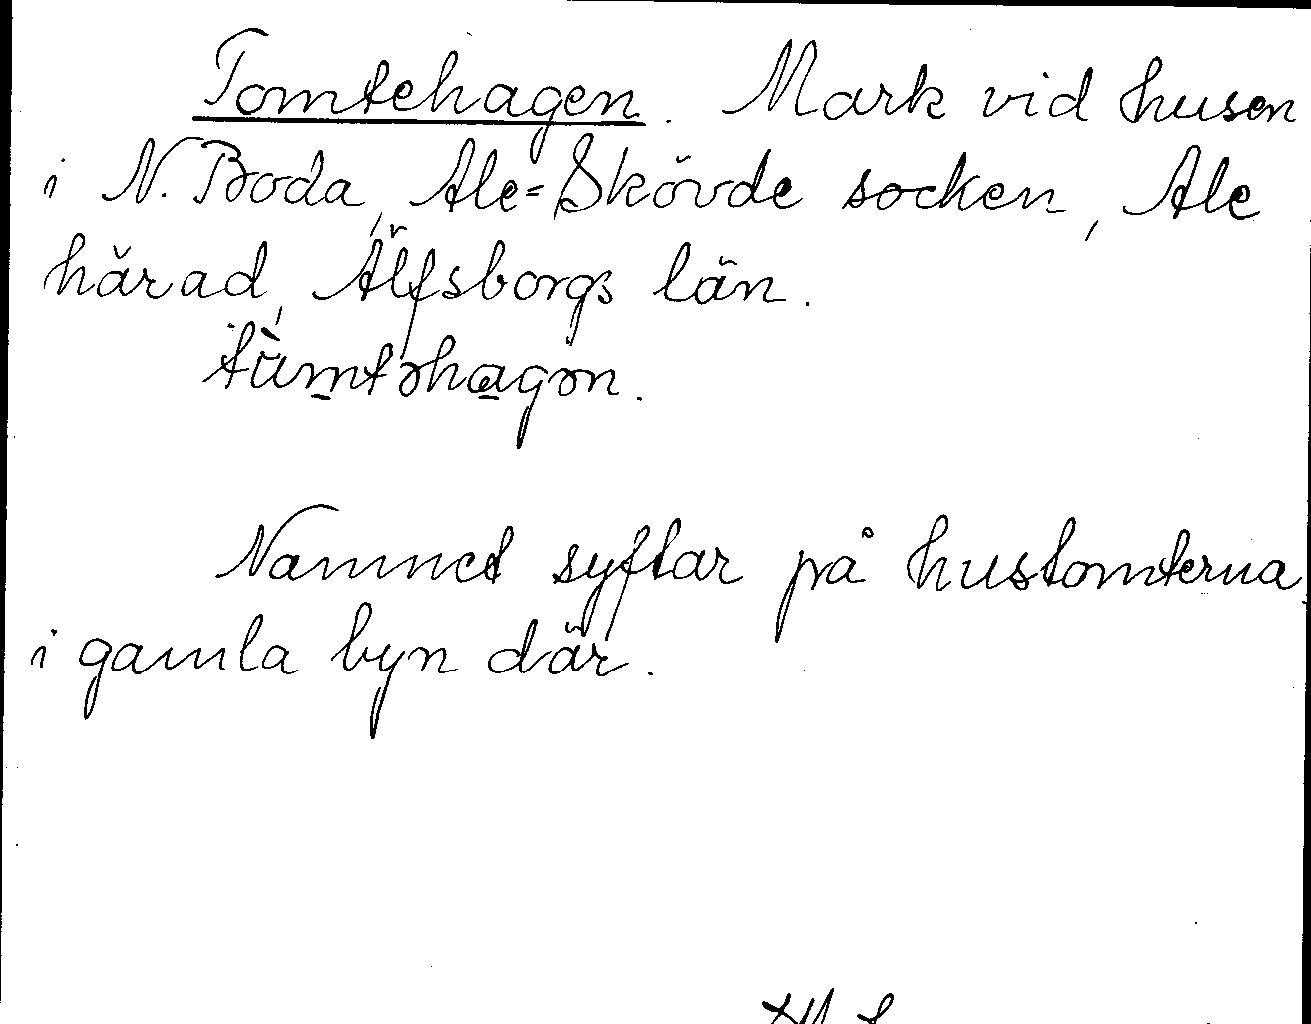 Tomtehagen. Mark vid husen
i N. Boda, Ale-Skövde socken, Ale
härad, Älfsborgs län.
tùmtəhagən.
Namnet syftar på hustomterna
i gamla byn där.